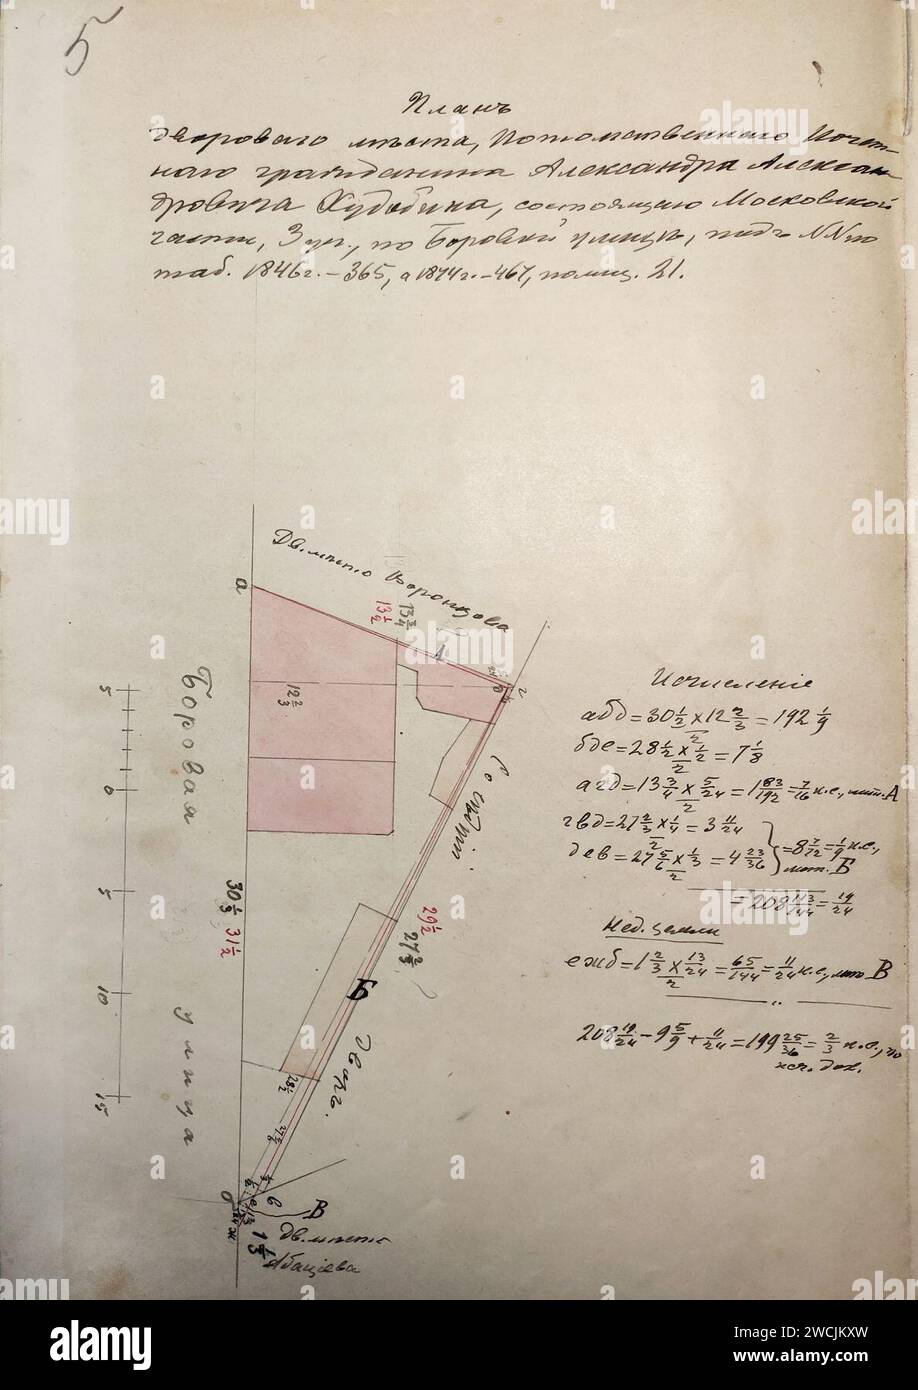 5
Планъ
дворового мѣста, Потомственнаго Почет-
наго гражданина Александра Алексан-
дровича Худобина, состоящаго Московской
части, 3 уч., по Боровой улицѣ, подъ NNпо
таб. 1846 г. – 365, а 1874 г. – 467, полиц. 21.
Дв. мѣсто Воронцова
а
13 3/4
13 1/2
А
г
д
12 2/3
Боровая
улица
5
0
5
10
15
30 1/3
31 1/2
29 1/2
27 2/3
Б
28 1/2
27 5/6
б
е
в
ж
В
1 2/3
дв. мѣсто
Исчисленіе
абд=30 1/3 х 12 2/3 / 2 = 192 1/9
бде=28 1/2 х 1/2 / 2 = 7 1/8
агд=13 3/4 х 5/24 / 2 = 1 83/192 = 7/16 к.с., лит. А
гвд=27 2/3 х 1/4 / 2 = 3 11/24
дев=27 5/6 х 1/3 / 2 = 4 23/36 } = 8 7/72 = 1/9 к.с., лит. Б
= 208 113/144 = 19/24
Нед. земли
ежб=1 2/3 х 13/24 / 2 = 65/144 = 11/24 к.с., лит. В
208 19/24 – 9 5/9 + 11/24 = 199 25/36 = 2/3 к.с., по
исч. дох.
alamy
Image ID: 2WCJKXW
www.alamy.com